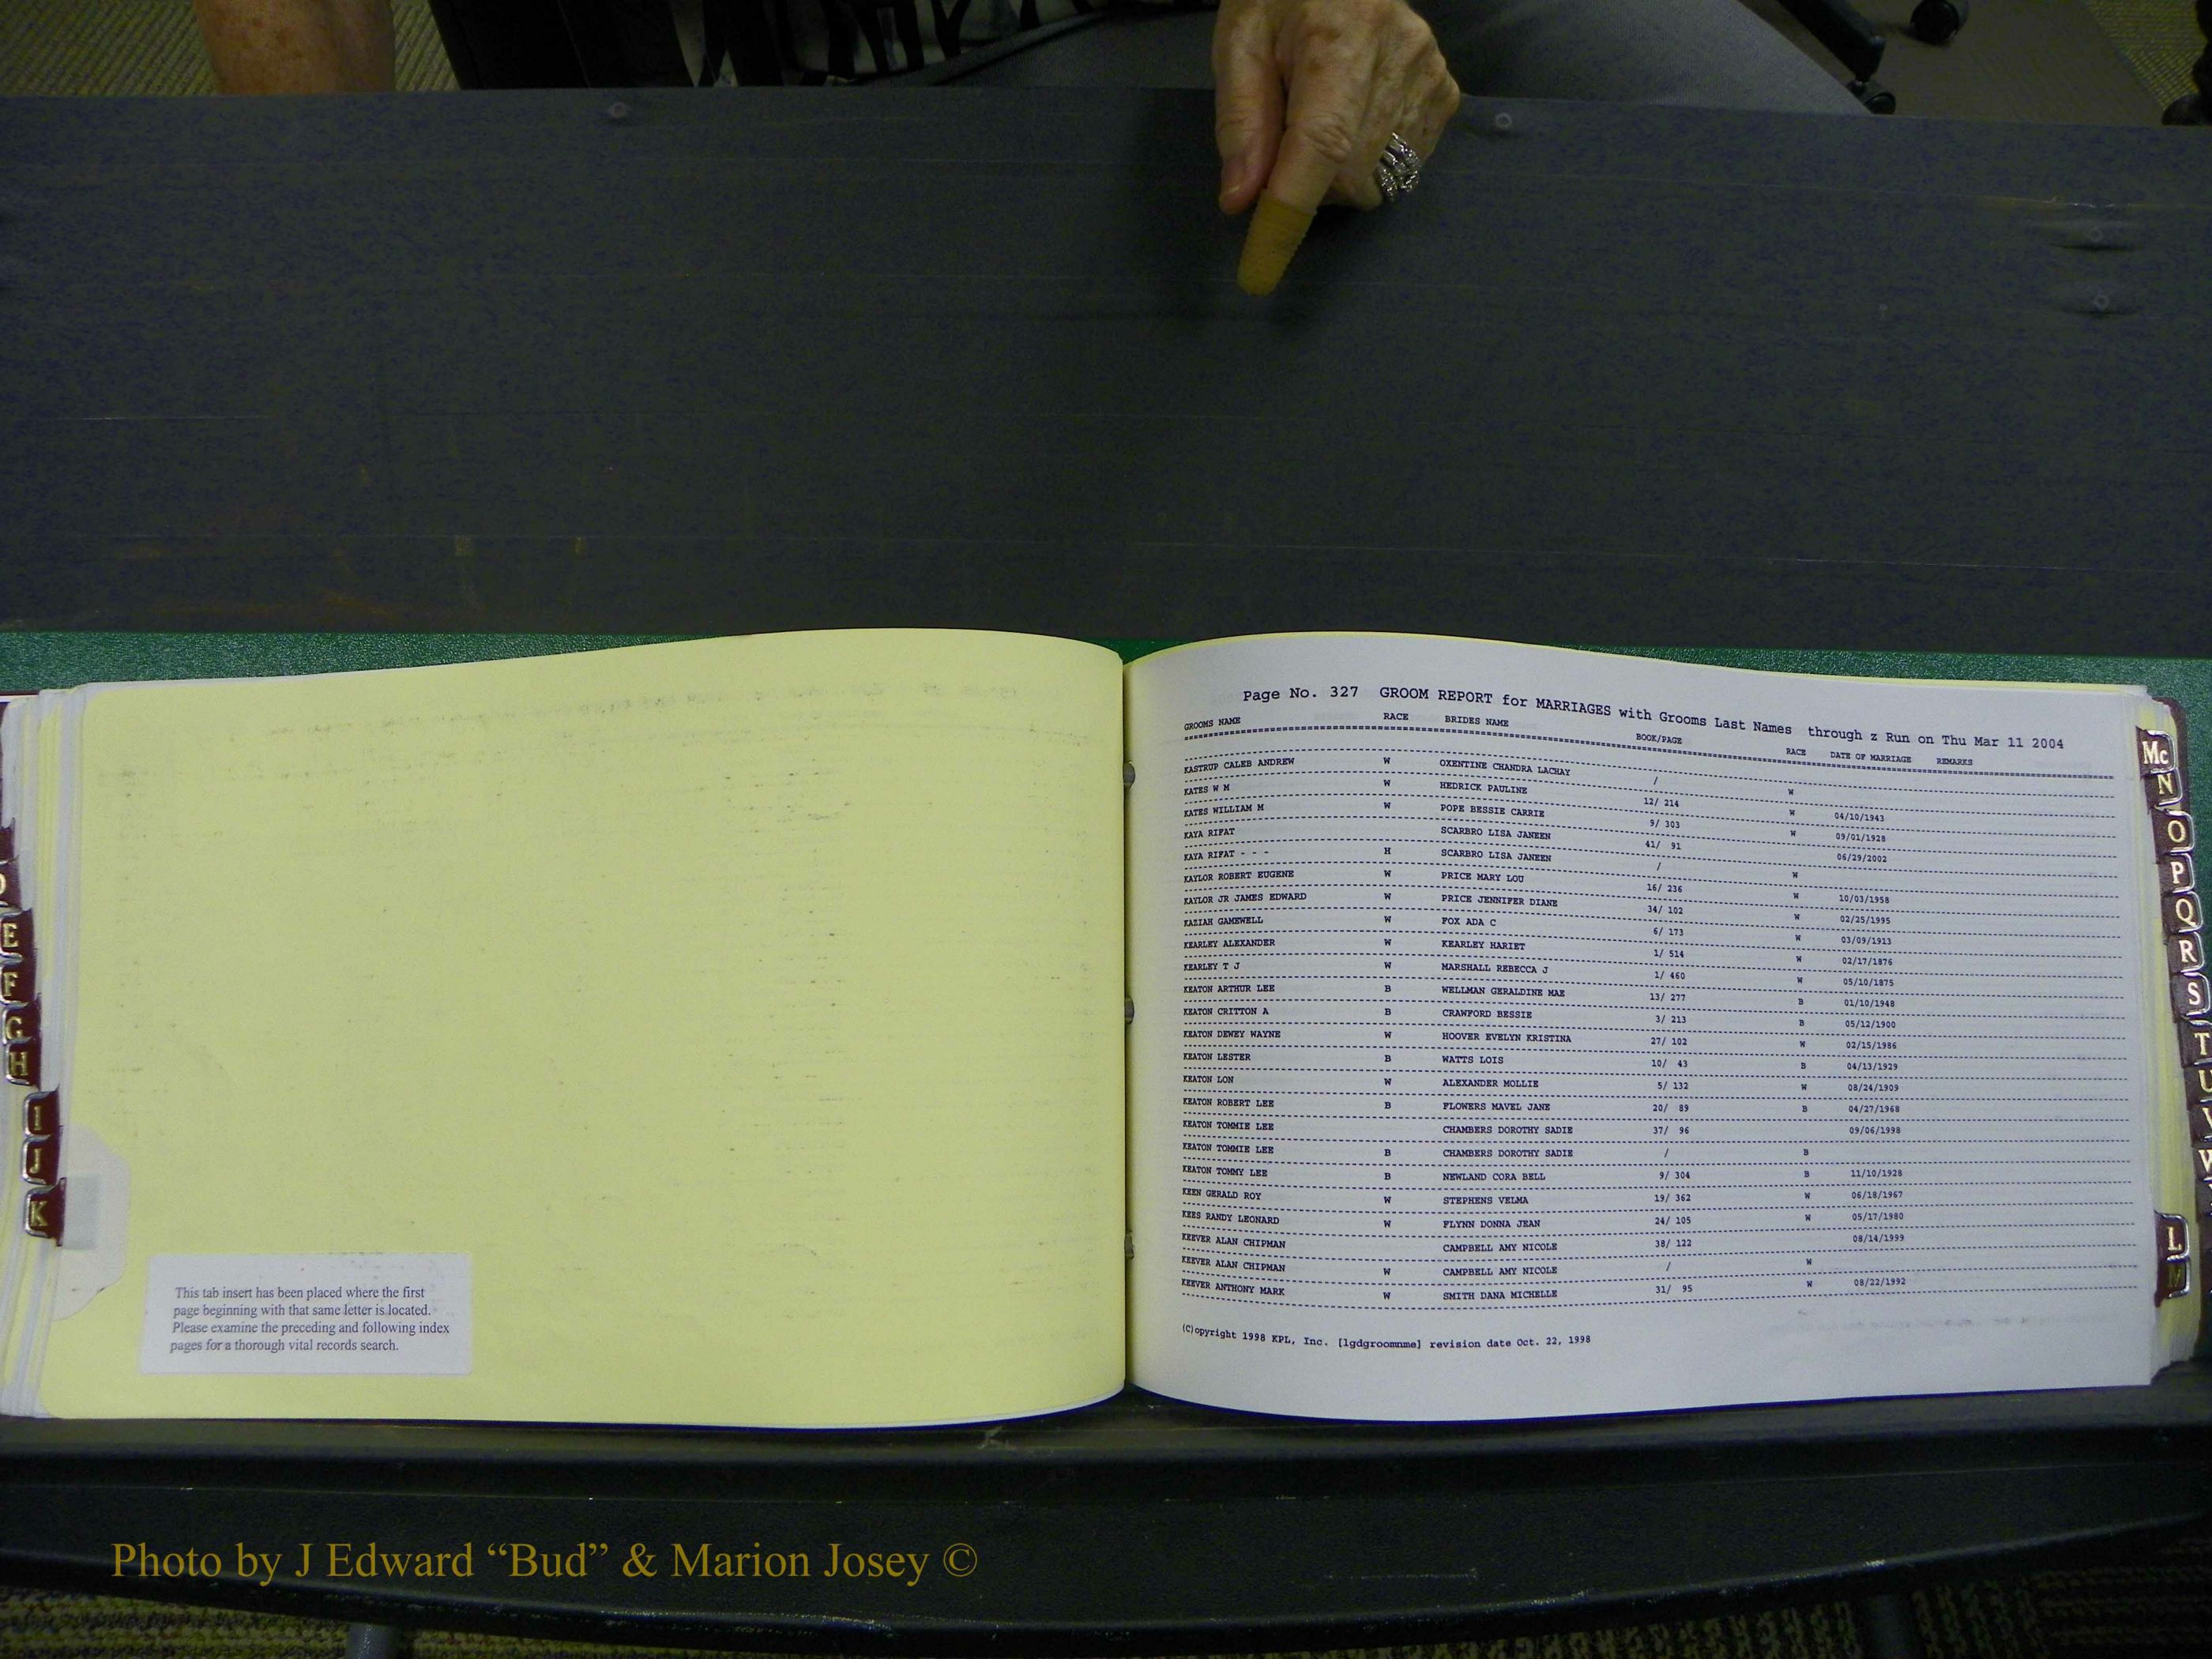 Page No. 327 GROOM REPORT for MARRIAGES with Grooms Last Names through z Run on Thu Mar 11 2004
GROOMS NAME RACE BRIDES NAME BOOK/PAGE RACE DATE OF MARRIAGE REMARKS
KASTRUP CALEB ANDREW W OXENTINE CHANDRA LACHAY / W
KATES W M W HEDRICK PAULINE 12/ 214 W 04/10/1943
KATES WILLIAM M W POPE BESSIE CARRIE 9/ 303 W 09/01/1928
KAYA RIFAT SCARBRO LISA JANEEN 41/ 91 06/29/2002
KAYA RIFAT - - - H SCARBRO LISA JANEEN / W
KAYLOR ROBERT EUGENE W PRICE MARY LOU 16/ 236 W 10/03/1958
KAYLOR JR JAMES EDWARD W PRICE JENNIFER DIANE 34/ 102 W 02/25/1995
KAZIAH GAMEWELL W FOX ADA C 6/ 173 W 03/09/1913
KEARLEY ALEXANDER W KEARLEY HARIET 1/ 514 W 02/17/1876
KEARLEY T J W MARSHALL REBECCA J 1/ 460 W 05/10/1875
KEATON ARTHUR LEE B WELLMAN GERALDINE MAE 13/ 277 B 01/10/1948
KEATON CRITTON A B CRAWFORD BESSIE 3/ 213 B 05/12/1900
KEATON DEWEY WAYNE W HOOVER EVELYN KRISTINA 27/ 102 W 02/15/1986
KEATON LESTER B WATTS LOIS 10/ 43 B 04/13/1929
KEATON LON W ALEXANDER MOLLIE 5/ 132 W 08/24/1909
KEATON ROBERT LEE B FLOWERS MAVEL JANE 20/ 89 B 04/27/1968
KEATON TOMMIE LEE CHAMBERS DOROTHY SADIE 37/ 96 09/06/1998
KEATON TOMMIE LEE B CHAMBERS DOROTHY SADIE / B
KEATON TOMMY LEE B NEWLAND CORA BELL 9/ 304 B 11/10/1928
KEEN GERALD ROY W STEPHENS VELMA 19/ 362 W 06/18/1967
KEES RANDY LEONARD W FLYNN DONNA JEAN 24/ 105 W 05/17/1980
KEEVER ALAN CHIPMAN CAMPBELL AMY NICOLE 38/ 122 08/14/1999
KEEVER ALAN CHIPMAN W CAMPBELL AMY NICOLE / W
KEEVER ANTHONY MARK W SMITH DANA MICHELLE 31/ 95 W 08/22/1992
(C)opyright 1998 KPL, Inc. [lgdgroomnme] revision date Oct. 22, 1998
E
F
G
H
I
J
K
This tab insert has been placed where the first
page beginning with that same letter is located.
Please examine the preceding and following index
pages for a thorough vital records search.
Mc
N
O
P
Q
R
S
T
U
V
W
L
M
Photo by J Edward “Bud” & Marion Josey ©